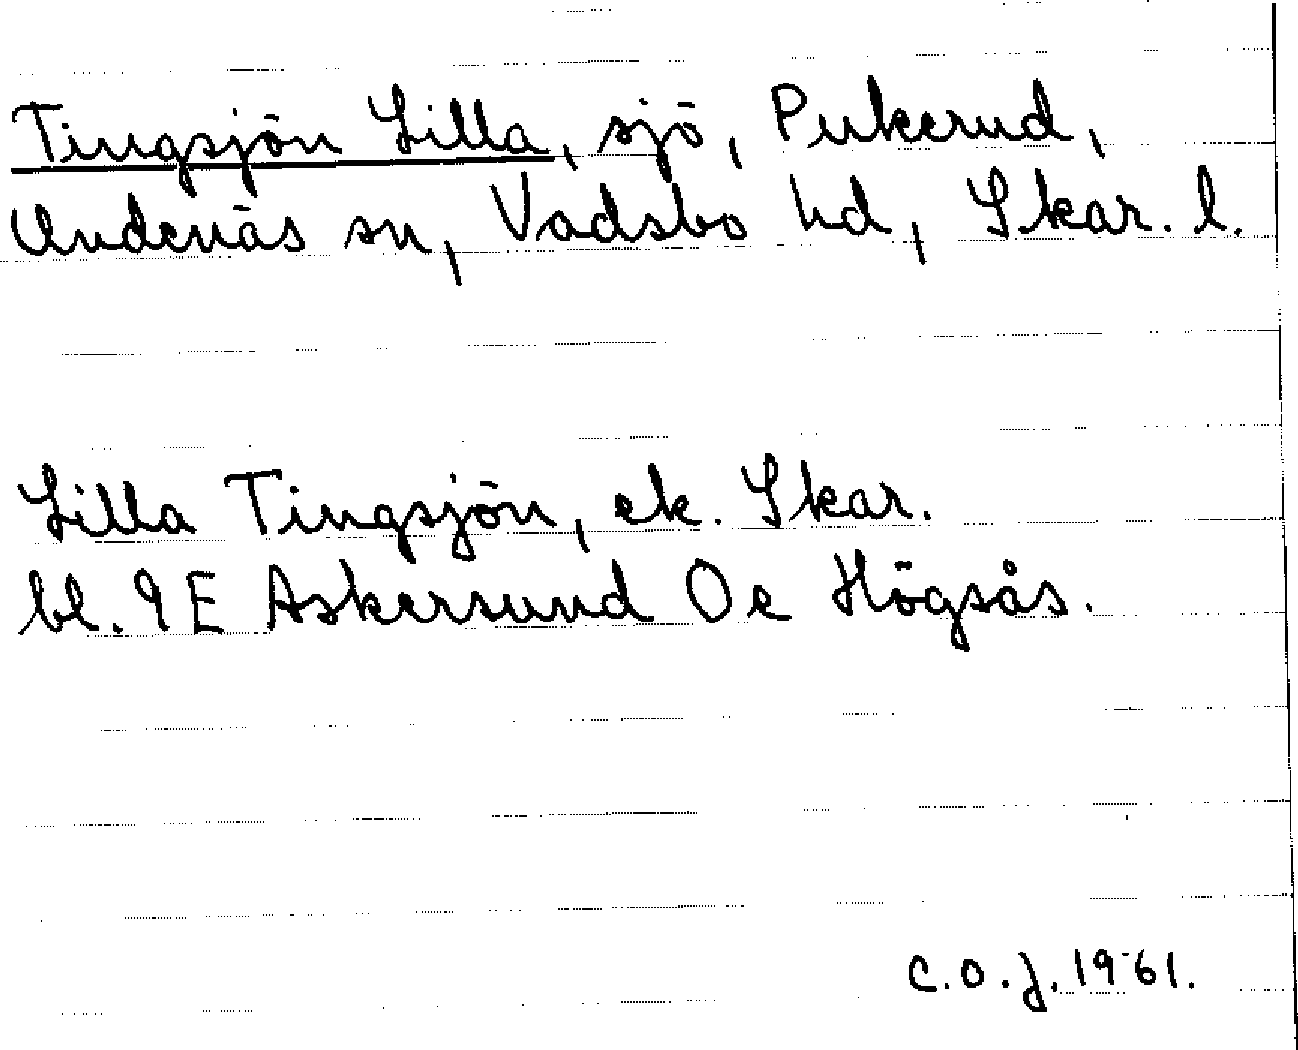 Tingsjön Lilla, sjö, Pukerud,
Undenäs sn, Vadsbo hd, Skar. l.
Lilla Tingsjön, ek. Skar.
bl. 9E Askersund Oe Högsås.
C.O.J. 1961.